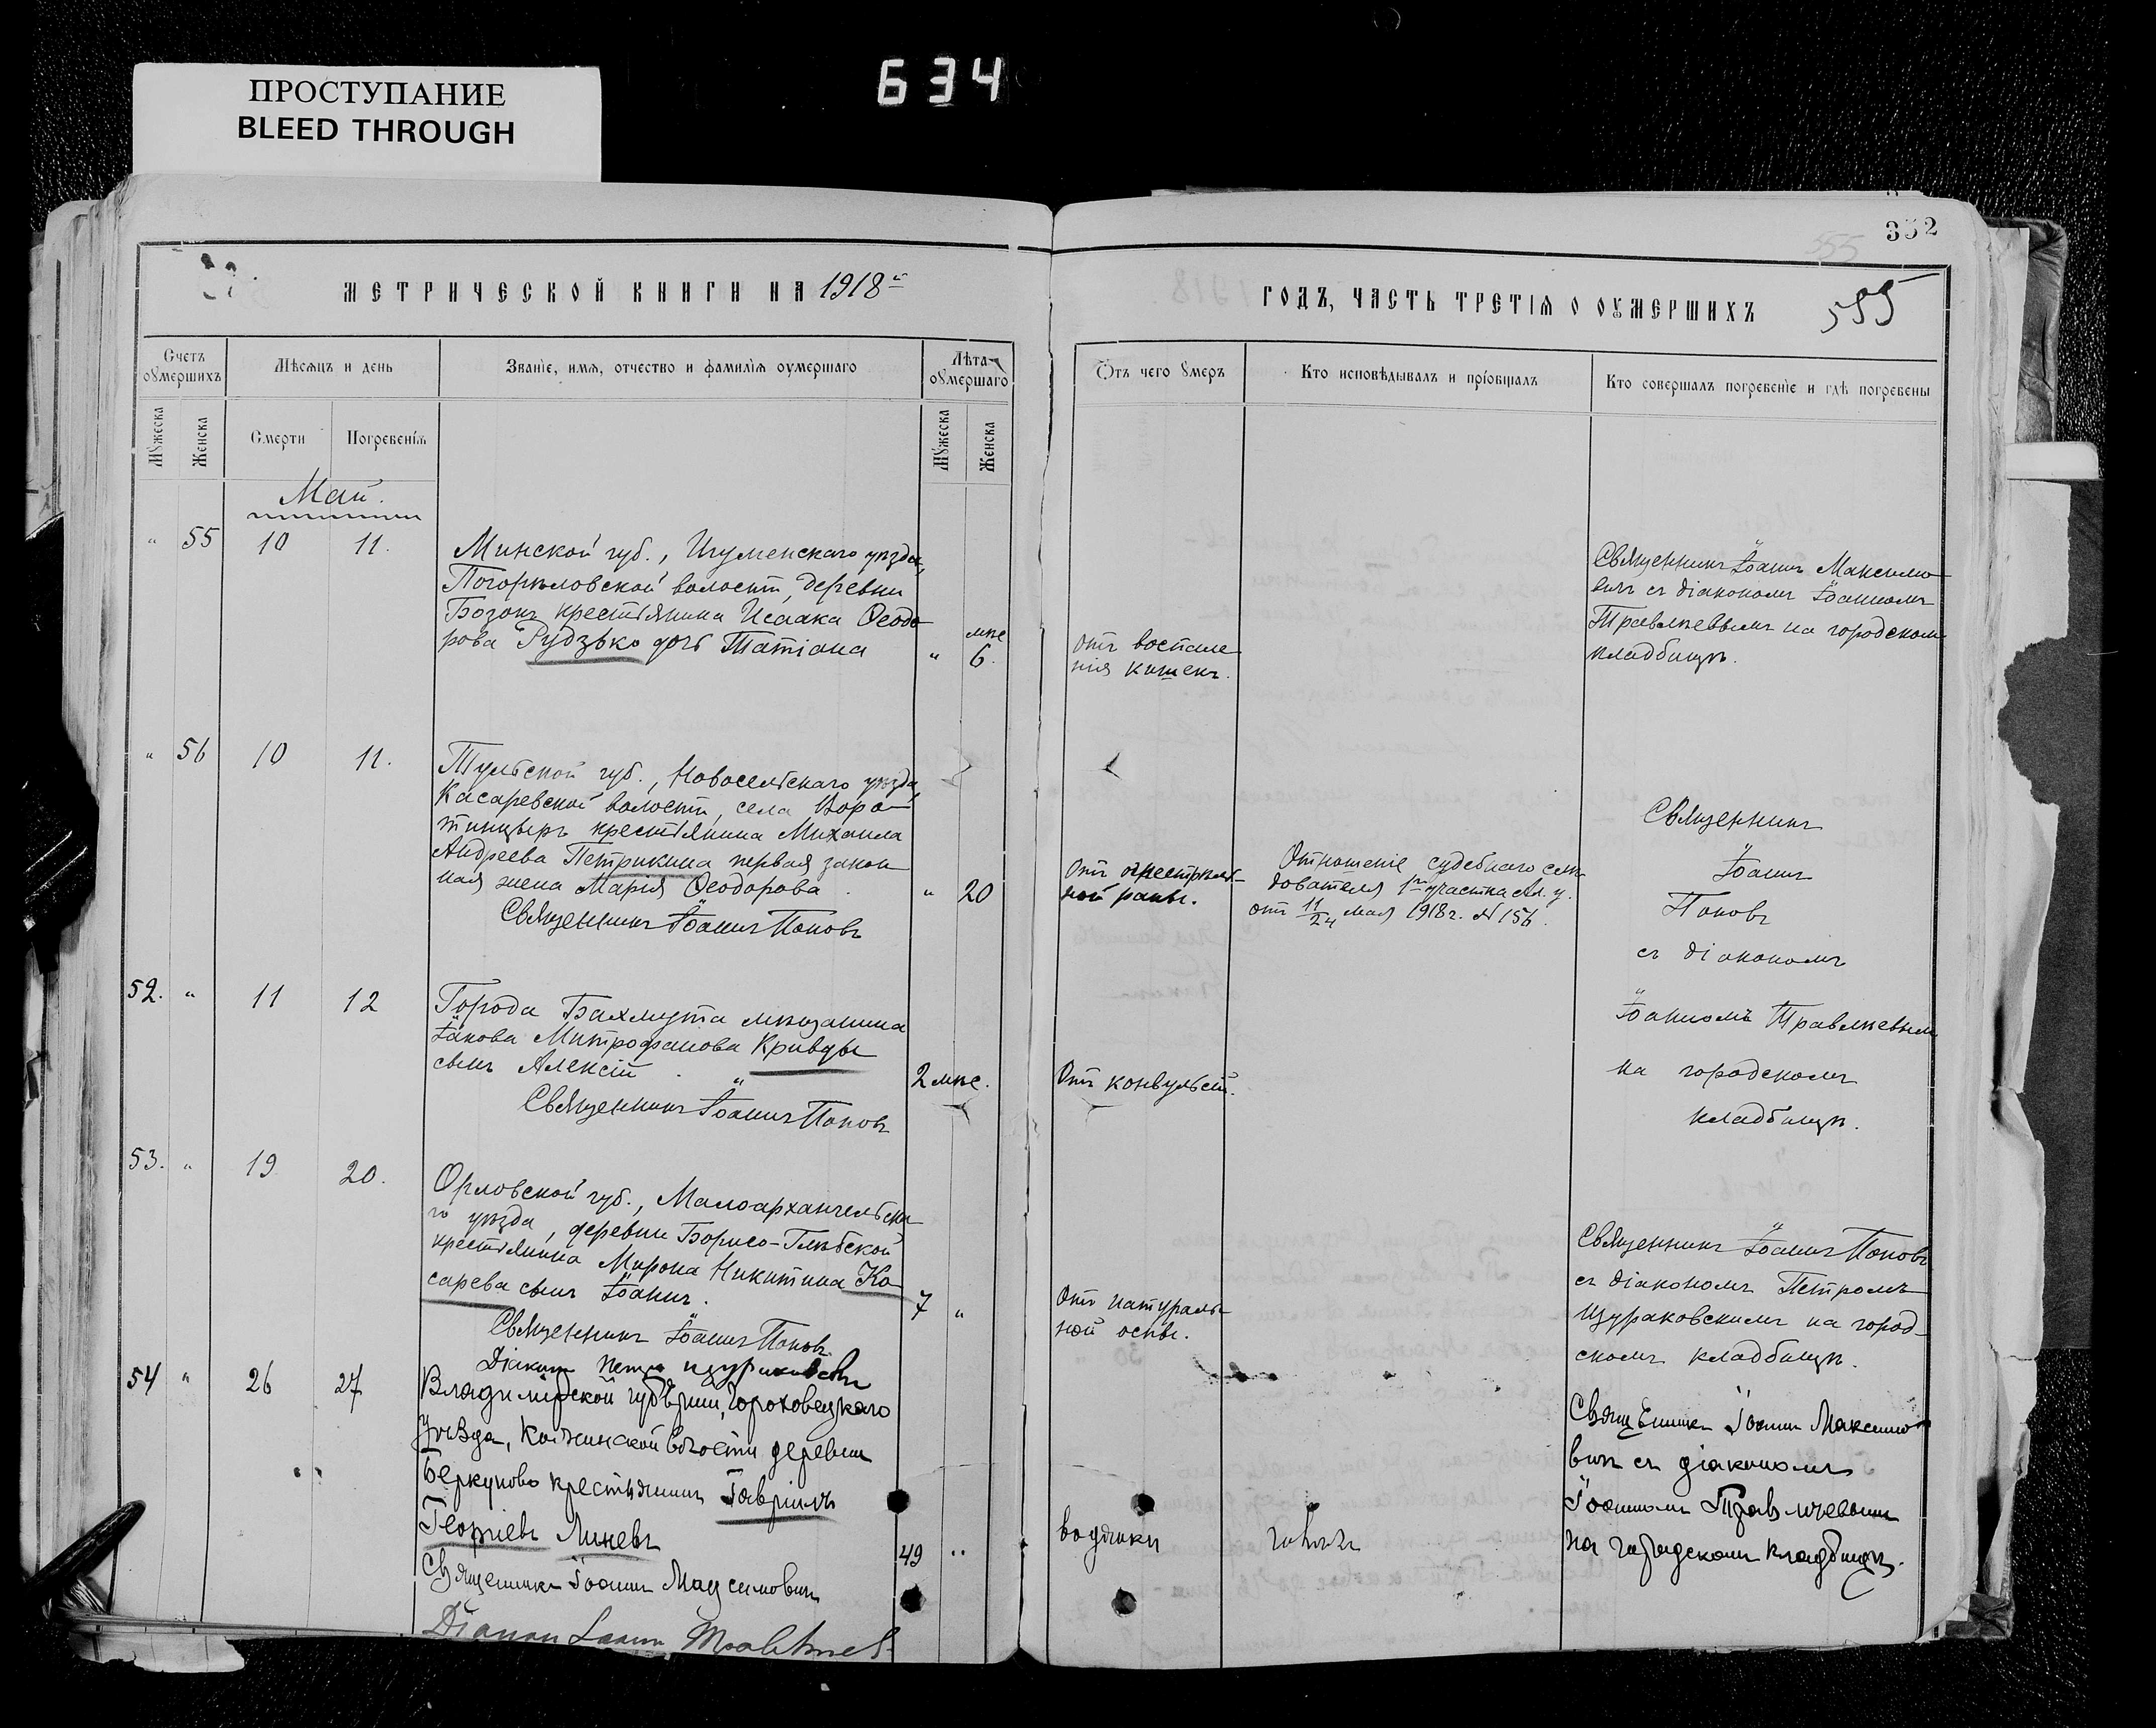 ПРОСТУПАНИЕ
BLEED THROUGH
634
352
МЕТРИЧЕСКОЙ КНИГИ НА 1918й
ГОДЪ, ЧАСТЬ ТРЕТІѦ О ОУМЕРШИХЪ
555
Счетъ оумершихъ
Мѣсѧцъ и день
Званіе, имѧ, отчество и фамиліѧ оумершаго
Лѣта оумершаго
Ѿтъ чего оумеръ
Кто исповѣдывалъ и пріобщалъ
Кто совершалъ погребеніе и гдѣ погребены
Мужеска
Женска
Смерти
Погребеніѧ
Мужеска
Женска
Май.
" 55 10 11.
Минской губ., Игуменскаго уѣзда,
Погорѣловской волости, деревни
Бозокъ крестьянина Исаака Ѳеодо-
рова Рудзько дочь Татіана
" мѣс 6.
отъ воспале-
нія кишекъ.
Священникъ Іоаннъ Максимо-
вичъ съ діакономъ Іоанномъ
Травлѣевымъ на городскомъ
кладбищѣ.
" 56 10 11.
Тульской губ., Новосельскаго уѣзда,
Касаревской волости, села Воро-
тинцывъ крестьянина Михаила
Андреева Петрикина первая закон-
ная жена Марія Ѳеодорова.
Священникъ Іоаннъ Поповъ
" 20
Отъ огнестрѣль-
ной раны.
Отношеніе судебнаго слѣ-
дователя 1го участка Ал. у.
отъ 11/24 мая 1918 г. № 156.
Священникъ
Іоаннъ
Поповъ
съ діакономъ
Іоанномъ Травлѣевымъ
на городскомъ
кладбищѣ.
52. " 11 12
Города Бахмута мѣщанина
Іакова Митрофанова Кривды
сынъ Алексій.
Священникъ Іоаннъ Поповъ
2 мѣс.
Отъ конвульсій.
53. " 19 20.
Орловской губ., Малоархангельска-
го уѣзда, деревни Борисо-Глѣбской
крестьянина Мирона Никитина Ко-
сарева сынъ Іоаннъ.
Священникъ Іоаннъ Поповъ
Діаконъ Петръ Щураковскій
7 "
Отъ натураль-
ной оспы.
Священникъ Іоаннъ Поповъ
съ діакономъ Петромъ
Щураковскимъ на город-
скомъ кладбищѣ.
54 " 26 27
Владимірской губерніи, Гороховецкаго
уѣзда, волости деревни
Беркуново крестьянинъ Гавріилъ
Георгіевъ Линевъ
Священникъ Іоаннъ Максимовичъ
Діаконъ Іоаннъ Травлѣевъ
49 "
водянки
Священникъ Іоаннъ Максимо-
вичъ съ діакономъ
Іоанномъ Травлѣевымъ
на городскомъ кладбищѣ.